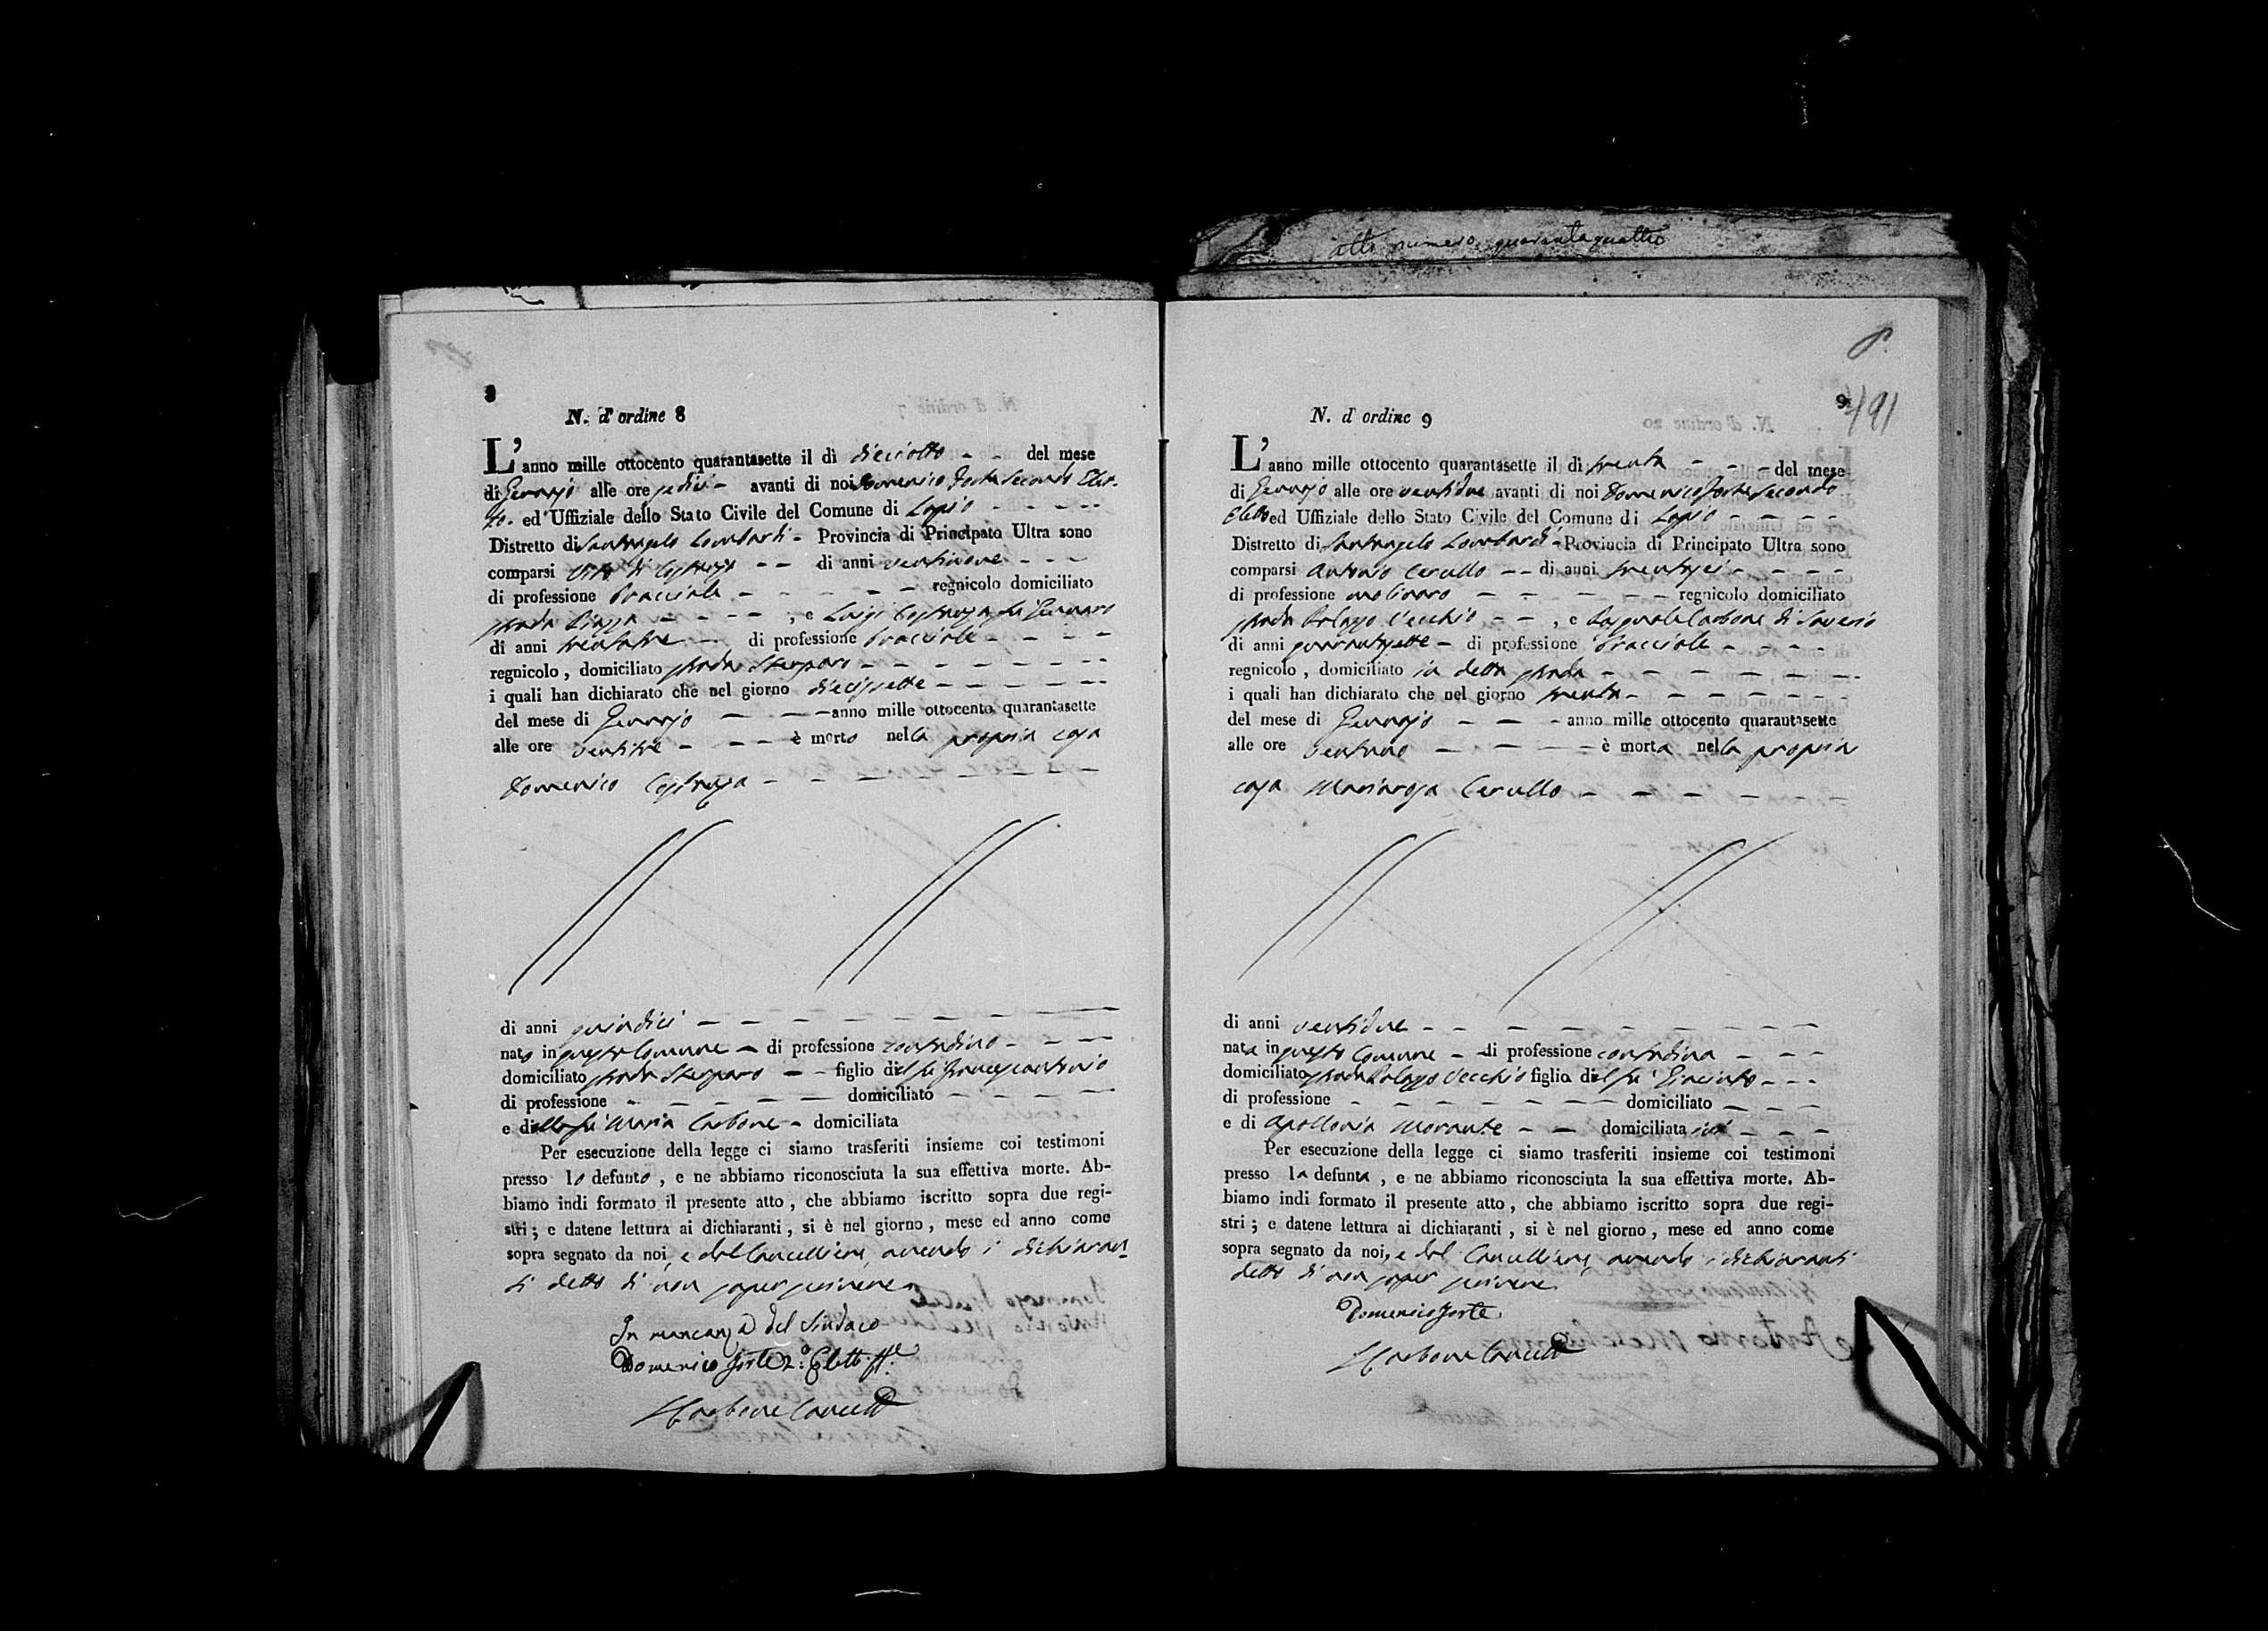 atto numero quarantaquattro
8
N. d' ordine 8
L'anno mille ottocento quarantasette il dì dieciotto - - del mese
di Gennajo alle ore sedici - avanti di noi Domenico Forte Secondo Elet-
to - ed Uffiziale dello Stato Civile del Comune di Lapio - - - -
Distretto di Santangelo Lombardi - Provincia di Principato Ultra sono
comparsi Vito di - - di anni ventinove - - -
di professione bracciale - - - - - regnicolo domiciliato
strada Piazza - - - - , e Luigi Costruzza fu Gennaro
di anni trentatre - di professione bracciale - - - -
regnicolo , domiciliato strada - - - - - - - -
i quali han dichiarato che nel giorno diecissette - - - - - -
del mese di Gennajo - - - anno mille ottocento quarantasette
alle ore ventitre - - - è morto nella propria casa
Domenico Costruzza - - - - - - - -
di anni quindici - - - - - - - -
nato in questo Comune - di professione contadino - - -
domiciliato strada - - figlio del fu Francescantonio
di professione - - - - - domiciliato - - - -
e della fu Maria Carbone - domiciliata
Per esecuzione della legge ci siamo trasferiti insieme coi testimoni
presso lo defunto , e ne abbiamo riconosciuta la sua effettiva morte. Ab-
biamo indi formato il presente atto , che abbiamo iscritto sopra due regi-
stri ; e datene lettura ai dichiaranti , si è nel giorno , mese ed anno come
sopra segnato da noi, e dal Cancelliere, avendo i dichiaran-
ti detto di non saper scrivere.
In mancanza del Sindaco
Domenico Forte 2.º Eletto ff.e
Carbone Cancell
9
491
N. d' ordine 9
L'anno mille ottocento quarantasette il dì trenta - - - del mese
di Gennajo alle ore ventidue avanti di noi Domenico Forte Secondo
Eletto ed Uffiziale dello Stato Civile del Comune di Lapio - - - -
Distretto di Santangelo Lombardi - Provincia di Principato Ultra sono
comparsi Antonio Cerullo - - di anni trentasei - - - - -
di professione molinaro - - - - - - regnicolo domiciliato
strada Palazzo Vecchio - - , e Pasquale Carbone di Saverio
di anni quarantasette - di professione bracciale - - - -
regnicolo , domiciliato in detta strada - - - - - - -
i quali han dichiarato che nel giorno trenta - - - - - - -
del mese di Gennajo - - - anno mille ottocento quarantasette
alle ore ventuno - - - - è morta nella propria
casa Mariarosa Cerullo - - - - - - -
di anni ventidue - - - - - - - -
nata in questo Comune - di professione contadina - - -
domiciliato strada Palazzo Vecchio figlia del fu Giacinto - - -
di professione - - - - - - - domiciliato - - -
e di Apollonia Morante - - domiciliata ivi - - -
Per esecuzione della legge ci siamo trasferiti insieme coi testimoni
presso la defunta , e ne abbiamo riconosciuta la sua effettiva morte. Ab-
biamo indi formato il presente atto , che abbiamo iscritto sopra due regi-
stri ; e datene lettura ai dichiaranti , si è nel giorno , mese ed anno come
sopra segnato da noi, e dal Cancelliere, avendo i dichiaranti
detto di non saper scrivere
Domenico Forte
Carbone Cancell